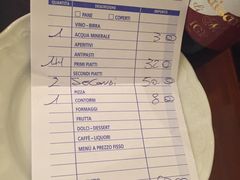 QUANTITÀ DESCRIZIONE IMPORTO
PANE COPERTI
VINO - BIRRA
1 ACQUA MINERALE 3 00
APERITIVI
ANTIPASTI
PRIMI PIATTI 32 00
2 SECONDI PIATTI Secondi 50 00
PIZZA
1 CONTORNI 8 00
FORMAGGI
FRUTTA
DOLCI - DESSERT
CAFFÈ - LIQUORI
MENÙ A PREZZO FISSO